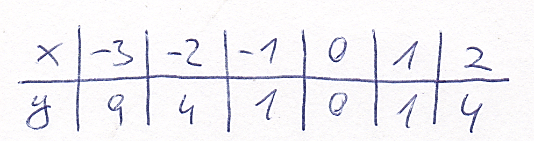 x | -3 | -2 | -1 | 0 | 1 | 2
y | 9 | 4 | 1 | 0 | 1 | 4